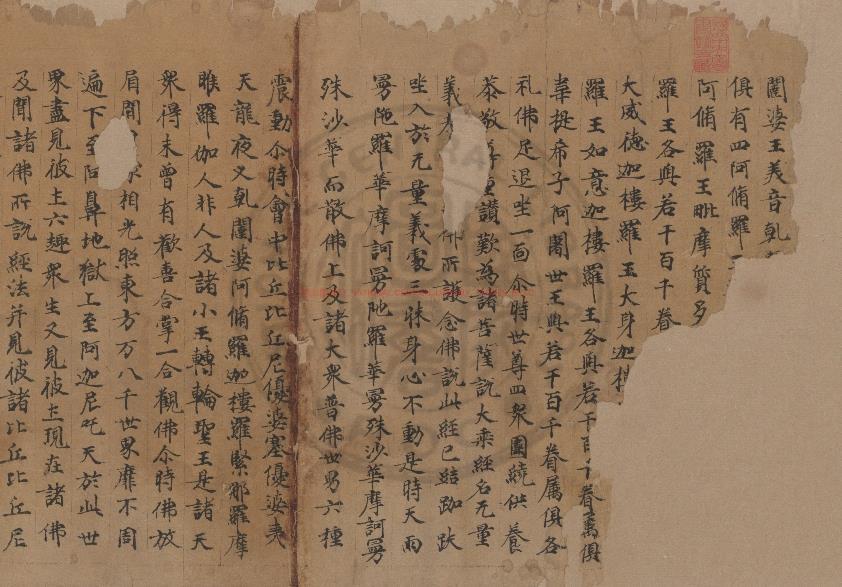 闥婆王美音乹
俱有四阿脩羅
阿脩羅王毗摩質多
羅王各與若干百千眷
大威德迦樓羅王大身迦樓
羅王如意迦樓羅王各與若干百千眷屬俱
韋提希子阿闍世王與若干百千眷屬俱各
礼佛足退坐一面尒時世尊四衆圍繞供養
恭敬尊重讃歎為諸菩薩說大乘經名无量
義 佛所護念佛說此經已結跏趺
坐入於无量義處三昧身心不動是時天雨
曼陁羅華摩訶曼陁羅華曼殊沙華摩訶曼
殊沙華而散佛上及諸大衆普佛世界六種
震動尒時會中比丘比丘尼優婆塞優婆夷
天龍夜叉乹闥婆阿脩羅迦樓羅緊那羅摩
睺羅伽人非人及諸小王轉輪聖王是諸天
衆得未曾有歡喜合掌一合觀佛尒時佛放
眉間 相光照東方万八千世界靡不周
遍下至阿鼻地獄上至阿迦尼吒天於此世
界盡見彼土六趣衆生又見彼土現在諸佛
及聞諸佛所說經法并見彼諸比丘比丘尼